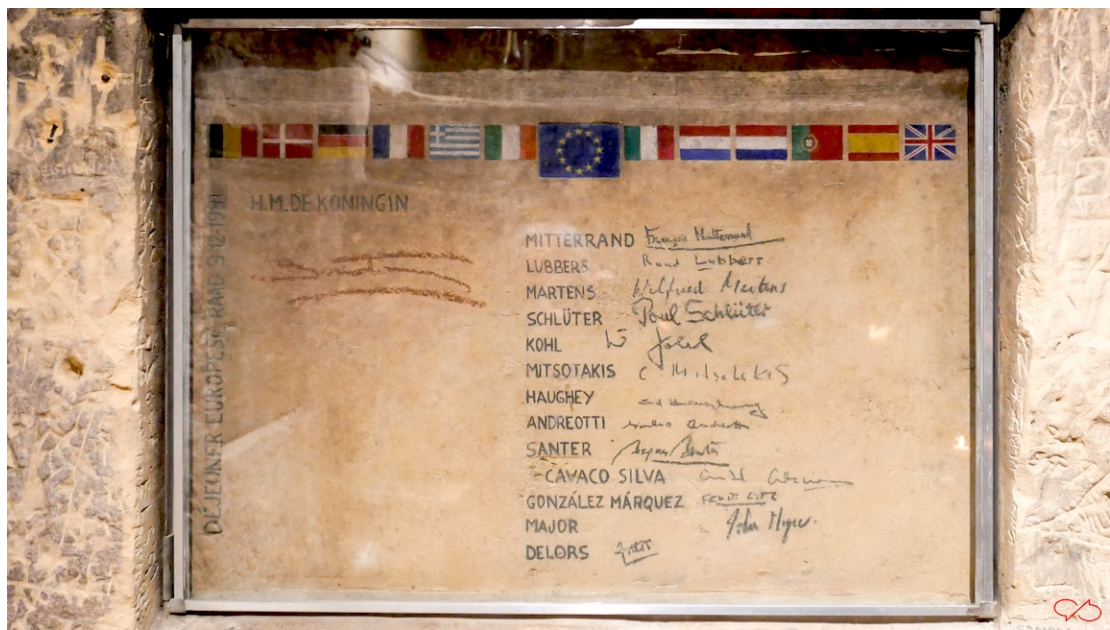 DÉJEUNER EUROPESE RAAD 9-12-1991
H.M. DE KONINGIN
MITTERRAND François Mitterrand
LUBBERS Ruud Lubbers
MARTENS Wilfried Martens
SCHLÜTER Poul Schlüter
KOHL
MITSOTAKIS C Mitsotakis
HAUGHEY
ANDREOTTI
SANTER
CAVACO SILVA
GONZÁLEZ MÁRQUEZ
MAJOR John Major
DELORS